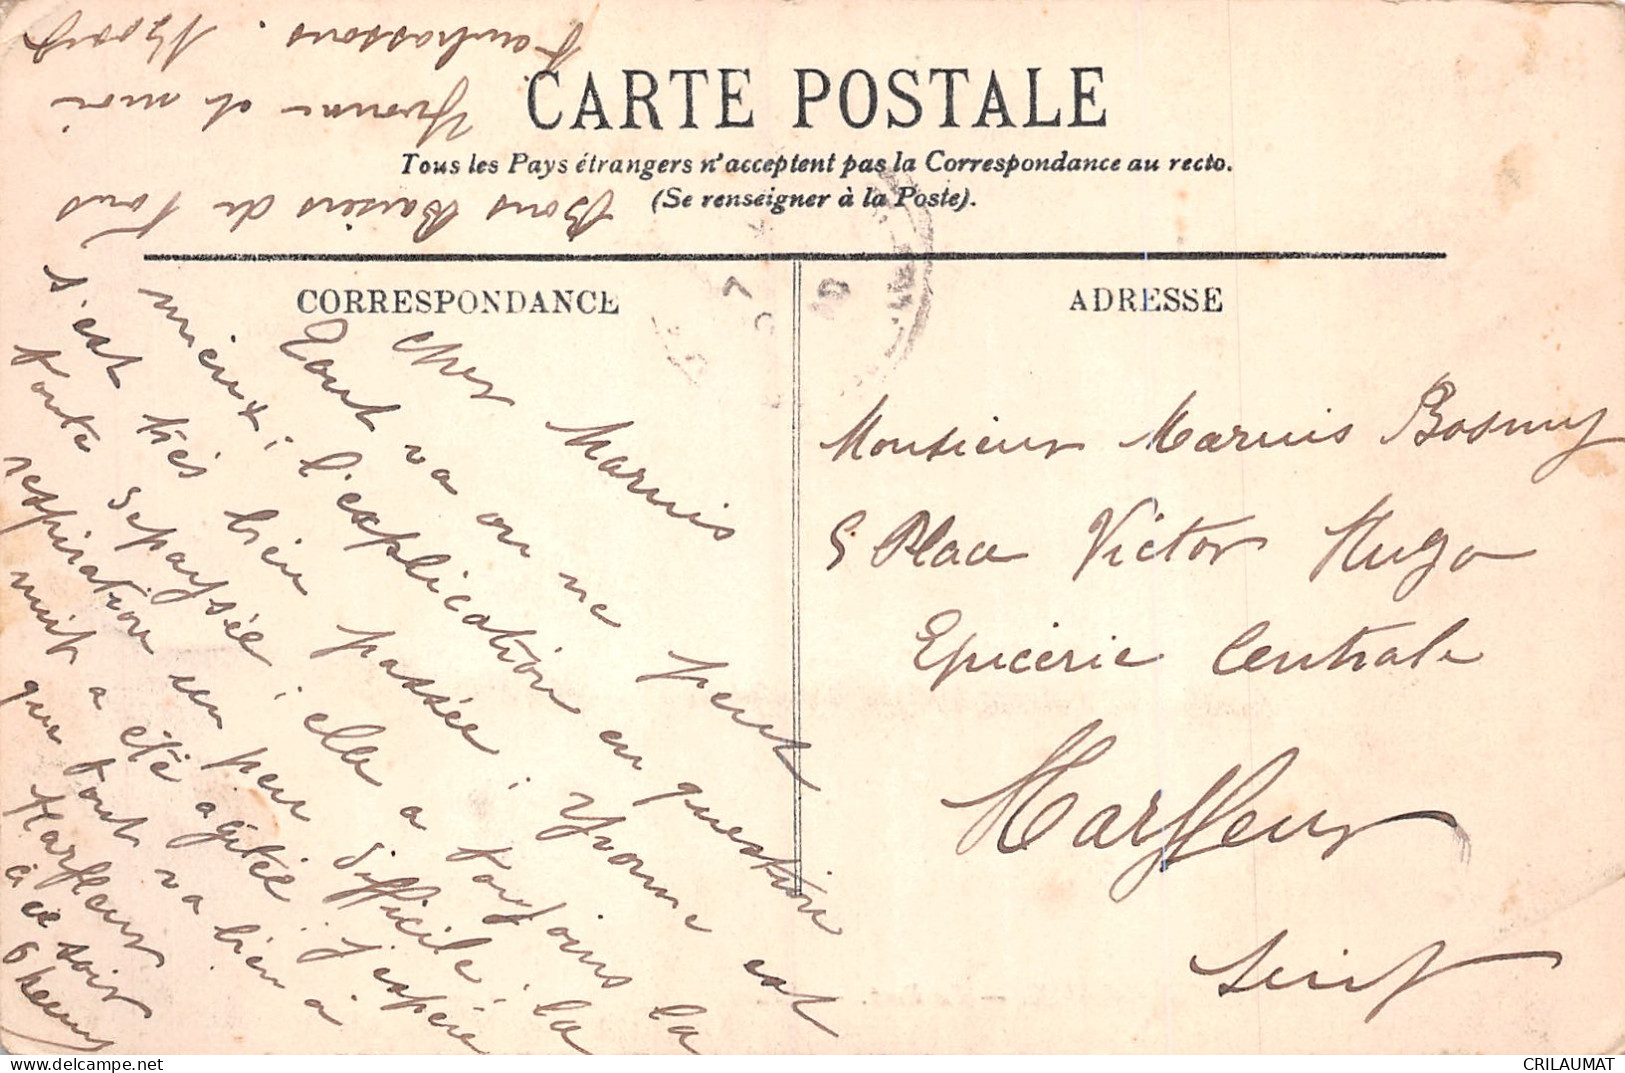 CARTE POSTALE
Tous les Pays étrangers n'acceptent pas la Correspondance au recto.
(Se renseigner à la Poste).
CORRESPONDANCE
ADRESSE
Cher Marius
Tout va on ne peut
mieux ; l'explication en question
s'est très bien passée ; Yvonne est
toute dépaysée ; elle a toujours la
respiration un peu difficile ; la
nuit a été agitée ; j'espère
que tout va bien à
Harfleur
à ce soir
6 heures
Bons Baisers de Tous
Yvonne et moi
t'embrassons.
Monsieur Marius
5 Place Victor Hugo
Epicerie Centrale
Harfleur
Seine Infre
CRILAUMAT